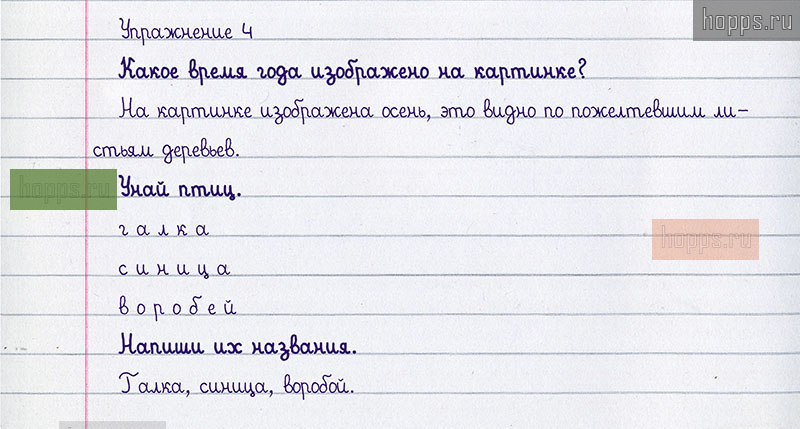 hopps.ru
Упражнение 4
Какое время года изображено на картинке?
На картинке изображена осень, это видно по пожелтевшим ли-
стьям деревьев.
hopps.ru
Унай птиц.
г а л к а
hopps.ru
с и н и ц а
в о р о б е й
Напиши их названия.
Галка, синица, воробой.